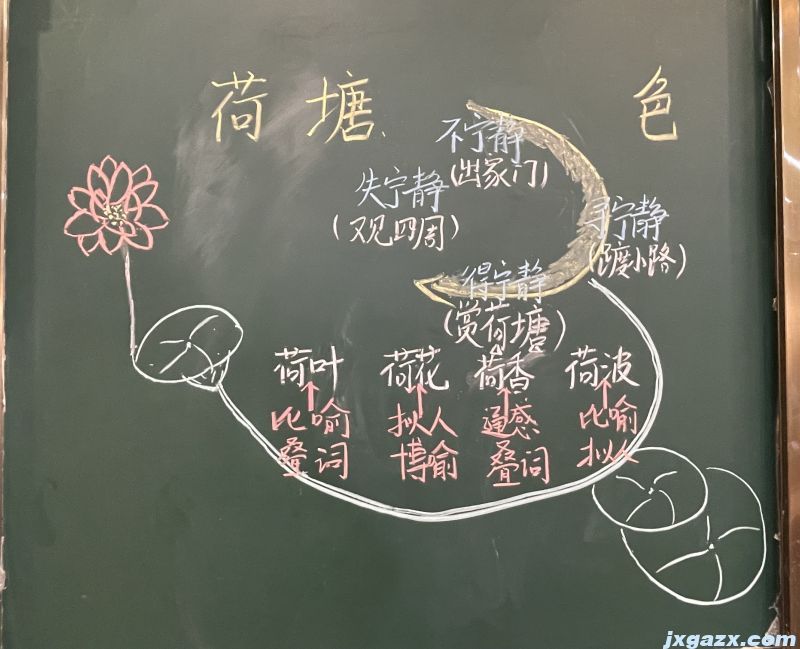 荷塘 色
不宁静
(出家门)
失宁静
(又见四周)
寻宁静
(踱小路)
得宁静
(赏荷塘)
荷叶 荷花 荷香 荷波
比喻 拟人 通感 比喻
叠词 博喻 叠词 拟人
jxgazx.com